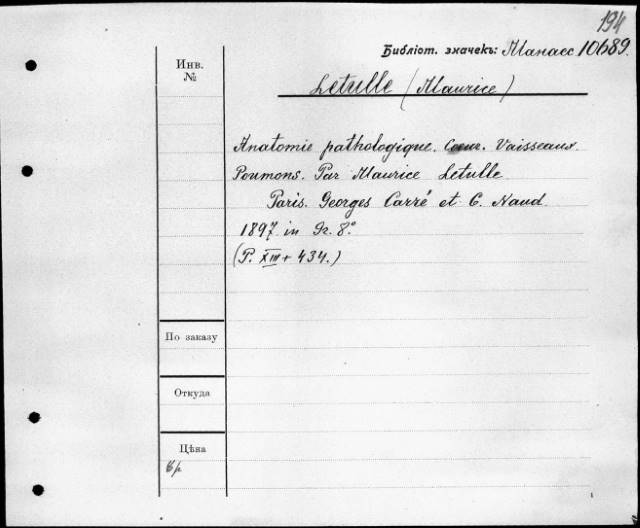 194
Библіот. значекъ: Манасс 10689.
Инв.
№
Letulle (Maurice)
Anatomie pathologique. Cœur. Vaisseaux.
Poumons. Par Maurice Letulle
Paris. Georges Carré et C. Naud
1897. in Gr. 8°
(P. XIII + 434.)
По заказу
Откуда
Цѣна
6р